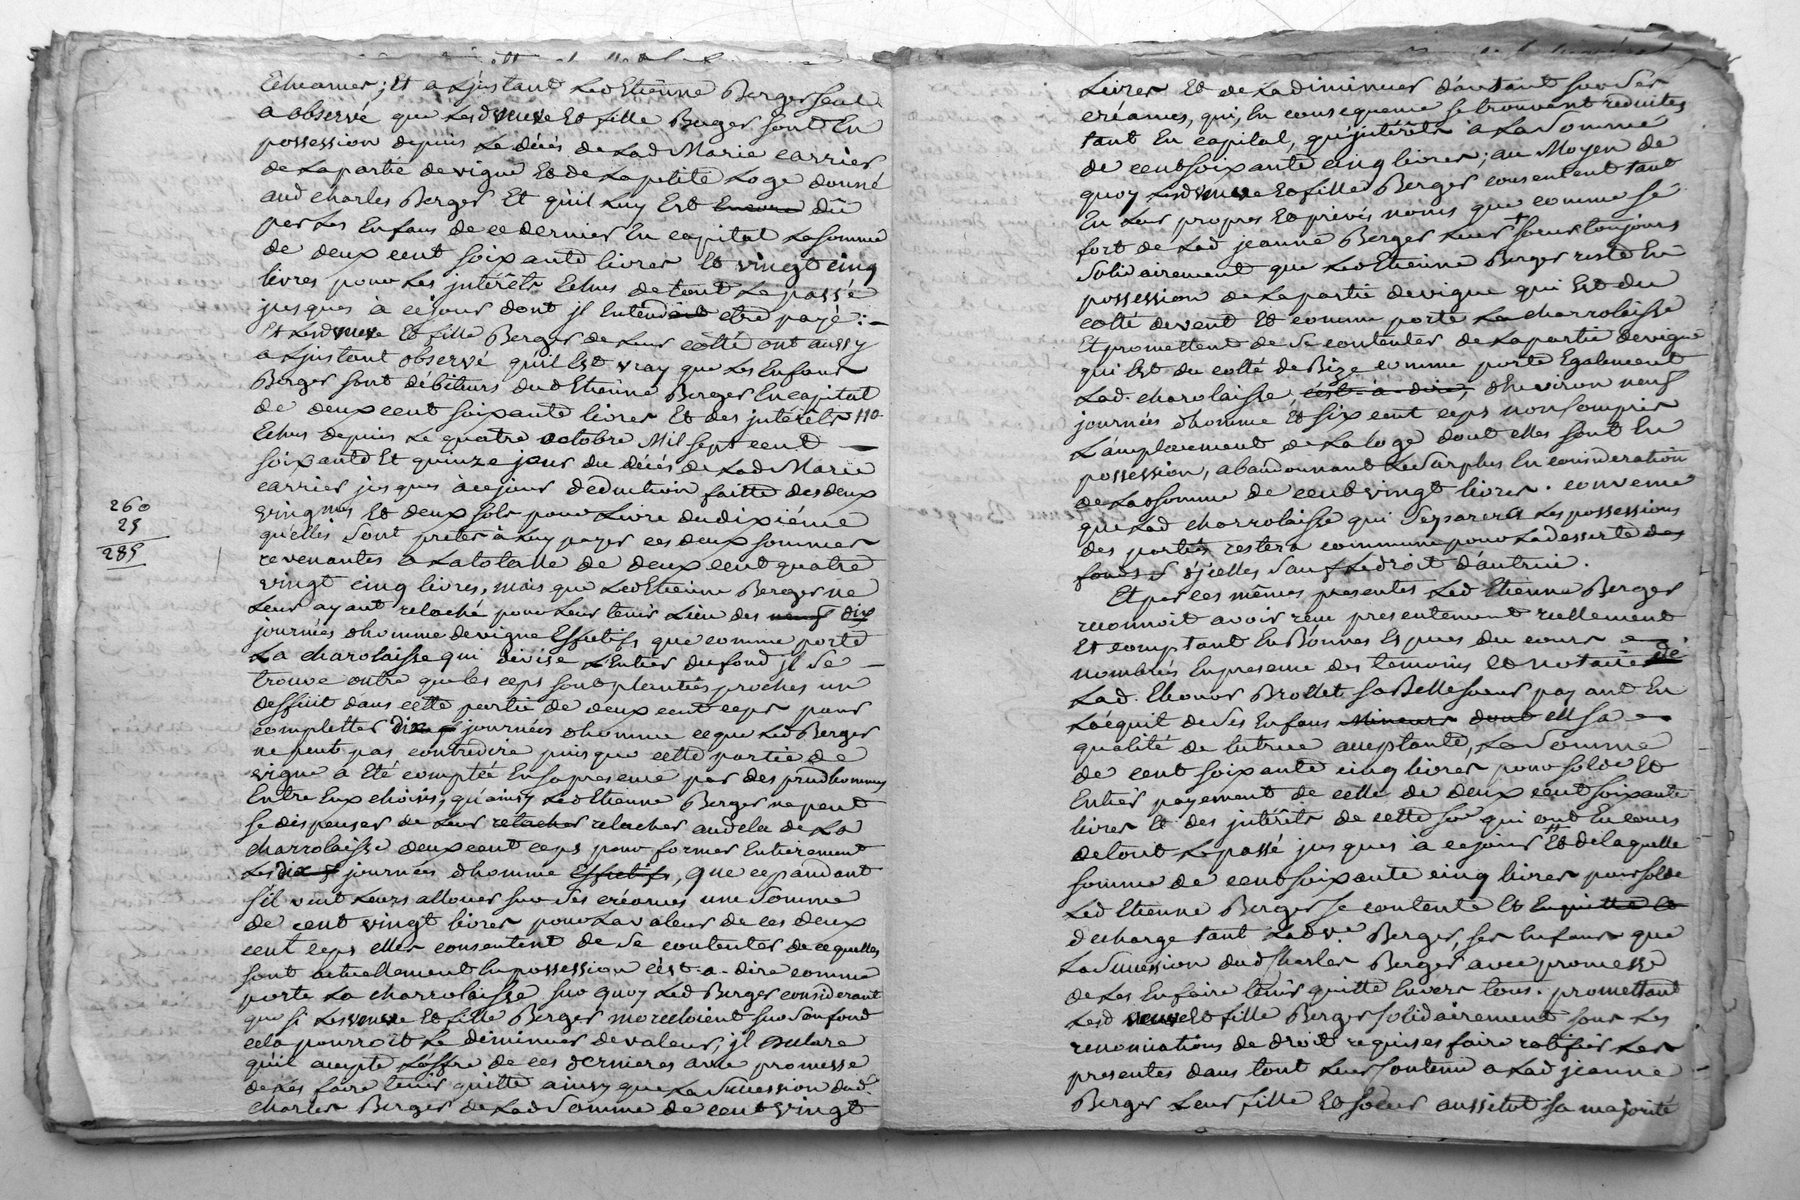 Echeances; Et a Ljnstant Led Etienne Berger seul
a observé que Lesd veuve Et fille Berger sont En
possession depuis Le décés de Lad Marie carrier
de La partie de vigne Et de La petite Loge donné
aud charles Berger Et qu'il Luy Est Encore dû
par Les Enfans de ce dernier En capital La somme
de deux cent soixante livres Et vingt cinq
livres pour Les jntérêts Echus de tout Le passé
jusques à ce jour dont jl Entendoit etre payé :
Et Lesd veuve Et fille Berger de Leur cotté ont aussy
a Ljnstant observé qu'il Est vray que Les Enfans
Berger sont débiteurs dud Etienne Berger En capital
de deux cent soixante livres Et des jntérêts
Echus depuis Le quatre octobre Mil sept cent
soixante Et quinze jour du décés de Lad Marie
carrier jusques à ce jour deduction faitte des deux
vingmes Et deux sols pour Livre du dixiéme
qu'elles sont pretes à Luy payer ces deux sommes
revenantes a La totalle de deux cent quatre
vingt cinq livres, mais que Led Etienne Berger ne
Leur ayant relaché pour Leur tenir Lieu des neuf dix
journées d'homme de vigne Effectifs que comme porte
La charolaisse qui divise L'Entier du fond jl se
trouve outre que les ceps sont plantés proches un
deffiit dans cette partie de deux cent ceps pour
completter dix journées d'homme ce que Led Berger
ne peut pas contredire puisque cette partie de
vigne à Eté comptée En sa presence par des prudhommes
Entre Eux choisis, qu'ainsy Led Etienne Berger ne peut
se dispenser de Leur retacher relacher audela de La
charrolaisse deux cent ceps pour former Entierement
Les dix journées d'homme Effectifs, que cependant
s'il veut Leurs allouer sur ses créances une somme
de cent vingt livres pour La valeur de ces deux
cent ceps elles consentent de se contenter de ce qu'elles
sont actuellement En possession c'est-a-dire comme
porte La charrolaisse sur quoy Led Berger considerant
que si Les veuve Et fille Berger morceloient sur son fond
cela pourroit Le diminuer de valeur, jl declare
qu'il accepte L'offre de ces dernieres avec promesse
de Les faire tenir quitte ainsy que La Succession dud
charles Berger de Lad somme de cent vingt
260
25
285
Livres Et de La diminuer d'autant sur ses
créances, qui, En consequence se trouvent reduites
tant En capital, qu'jntérêts a La somme
de cent soixante cinq livres; au Moyen de
quoy Lesd veuve Et fille Berger consentent tant
En Leur propres Et privés noms que comme se
fort de Lad jeanne Berger Leur soeur toujours
solidairement que Led Etienne Berger reste En
possession de La partie de vigne qui Est du
cotté de vent Et comme porte La charrolaisse
Et promettent de se contenter de La partie de vigne
qui Est du cotté de Bize comme porte Egalement
Lad. charolaisse, c'est-a-dire, d'Environ neuf
journées d'homme Et six cent ceps non compris
L'amplacement de La loge dont elles sont En
possession, abandonnant Le surplus En consideration
de Lad somme de cent vingt livres. convenu
que Lad charrolaisse qui separera Les possessions
des parties restera commune pour La desserte des
fonds d'jcelles sauf Le droit d'autrui.
Et par ces mêmes presentes Led Etienne Berger
reconnoit avoir reçu presentement réellement
Et comptant En Bonnes Especes du cours
nombrés En presence des temoins et notaire de
Lad. Eleonor Brollet sa Belle soeur payant En
L'acquit de ses Enfans Mineurs dont ell sa
qualité de tutrice acceptante, La somme
de cent soixante cinq livres pour solde Et
Entier payement de celle de deux cent soixante
livres Et des jntérêts de cette soe qui ont En cours
de tout Le passé jusques à ce jour Et de laquelle
somme de cent soixante cinq livres pour solde
Led Etienne Berger se contente Et En quitte Et
decharge tant Lad ve. Berger, ses Enfans que
La Succession dud Charles Berger avec promesse
de Les En faire tenir quitte Envers tous. promettant
Lesd veuve Et fille Berger solidairement sous Les
renonciations de droit requises faire ratifier Les
presentes dans tout Leur contenu a Lad jeanne
Berger Leur fille Et soeur aussitot sa majorité